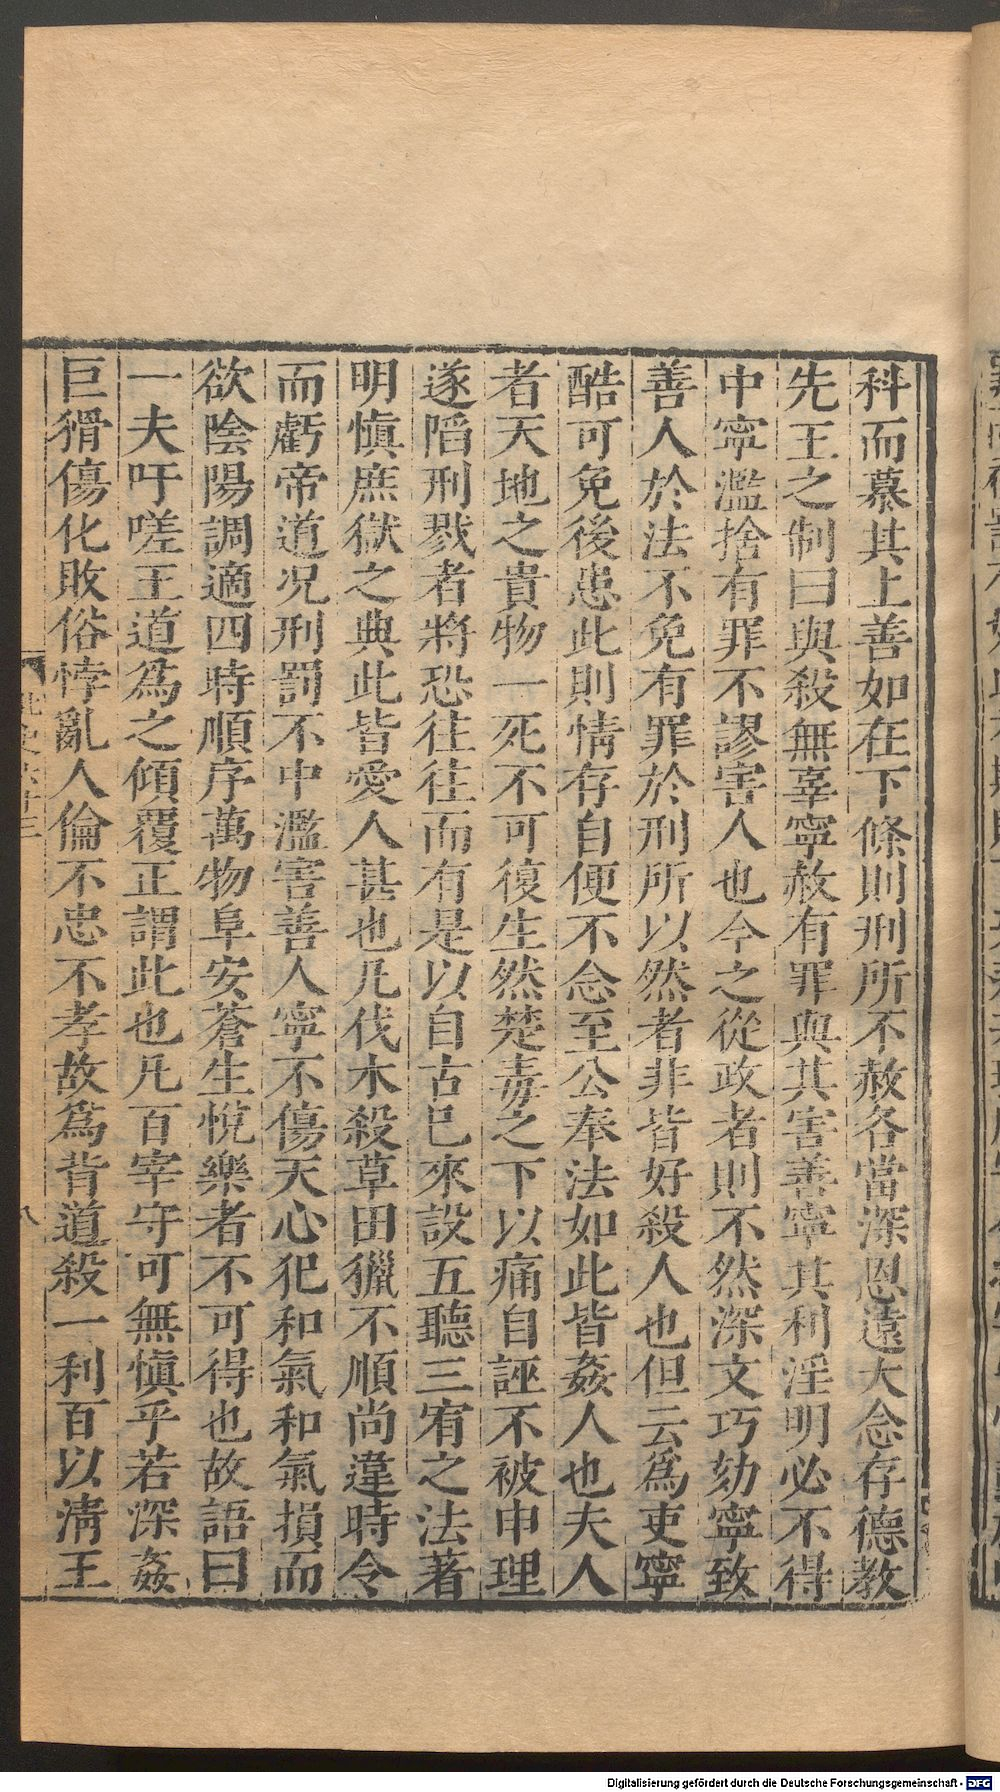 科而慕其上善如在下條則刑所不赦各當深恩遠大念存德教
先王之制曰與殺無辜寧赦有罪與其害善寧其利淫明必不得
中寧濫捨有罪不謬害人也今之從政者則不然深文巧劾寧致
善人於法不免有罪於刑所以然者非皆好殺人也但云爲吏寧
酷可免後患此則情存自便不念至公奉法如此皆姦人也夫人
者天地之貴物一死不可復生然楚毒之下以痛自誣不被申理
遂陷刑戮者將恐往往而有是以自古已來設五聽三宥之法著
明慎庶獄之典此皆愛人甚也凡伐木殺草田獵不順尚違時令
而虧帝道况刑罰不中濫害善人寧不傷天心犯和氣和氣損而
欲陰陽調適四時順序萬物阜安蒼生悅樂者不可得也故語曰
一夫吁嗟王道爲之傾覆正謂此也凡百宰守可無慎乎若深姦
巨猾傷化敗俗悖亂人倫不忠不孝故爲背道殺一利百以清王
八
Digitalisierung gefördert durch die Deutsche Forschungsgemeinschaft - DFG